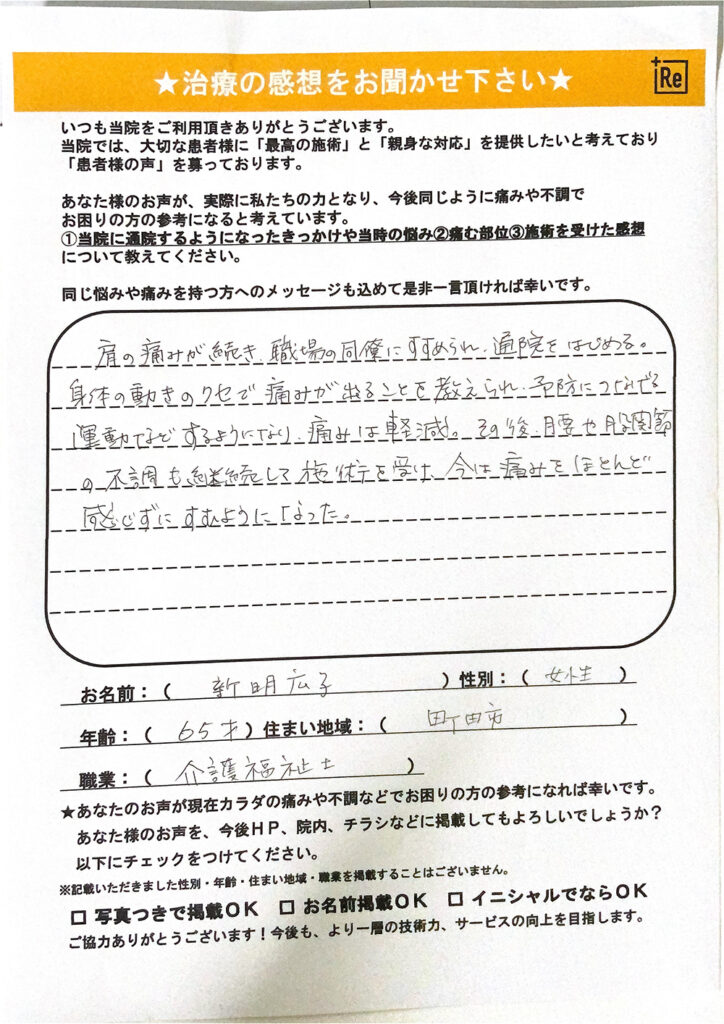 ★治療の感想をお聞かせ下さい★
+Re
いつも当院をご利用頂きありがとうございます。
当院では、大切な患者様に「最高の施術」と「親身な対応」を提供したいと考えており
「患者様の声」を募っております。
あなた様のお声が、実際に私たちの力となり、今後同じように痛みや不調で
お困りの方の参考になると考えています。
①当院に通院するようになったきっかけや当時の悩み②痛む部位③施術を受けた感想
について教えてください。
同じ悩みや痛みを持つ方へのメッセージも込めて是非一言頂ければ幸いです。
肩の痛みが続き、職場の同僚にすすめられ、通院をはじめる。
身体の動きのクセで痛みが出ることを教えられ、予防につなげる
運動などするようになり、痛みは軽減。その後、腰や股関節
の不調も継続して施術を受け、今は痛みをほとんど
感じずにすむようになった。
お名前:( 新明広子 )性別:( 女性 )
年齢:( 65才 )住まい地域:( 町田市 )
職業:( 介護福祉士 )
★あなたのお声が現在カラダの痛みや不調などでお困りの方の参考になれば幸いです。
あなた様のお声を、今後HP、院内、チラシなどに掲載してもよろしいでしょうか?
以下にチェックをつけてください。
※記載いただきました性別・年齢・住まい地域・職業を掲載することはございません。
□ 写真つきで掲載OK □ お名前掲載OK □ イニシャルでならOK
ご協力ありがとうございます!今後も、より一層の技術力、サービスの向上を目指します。